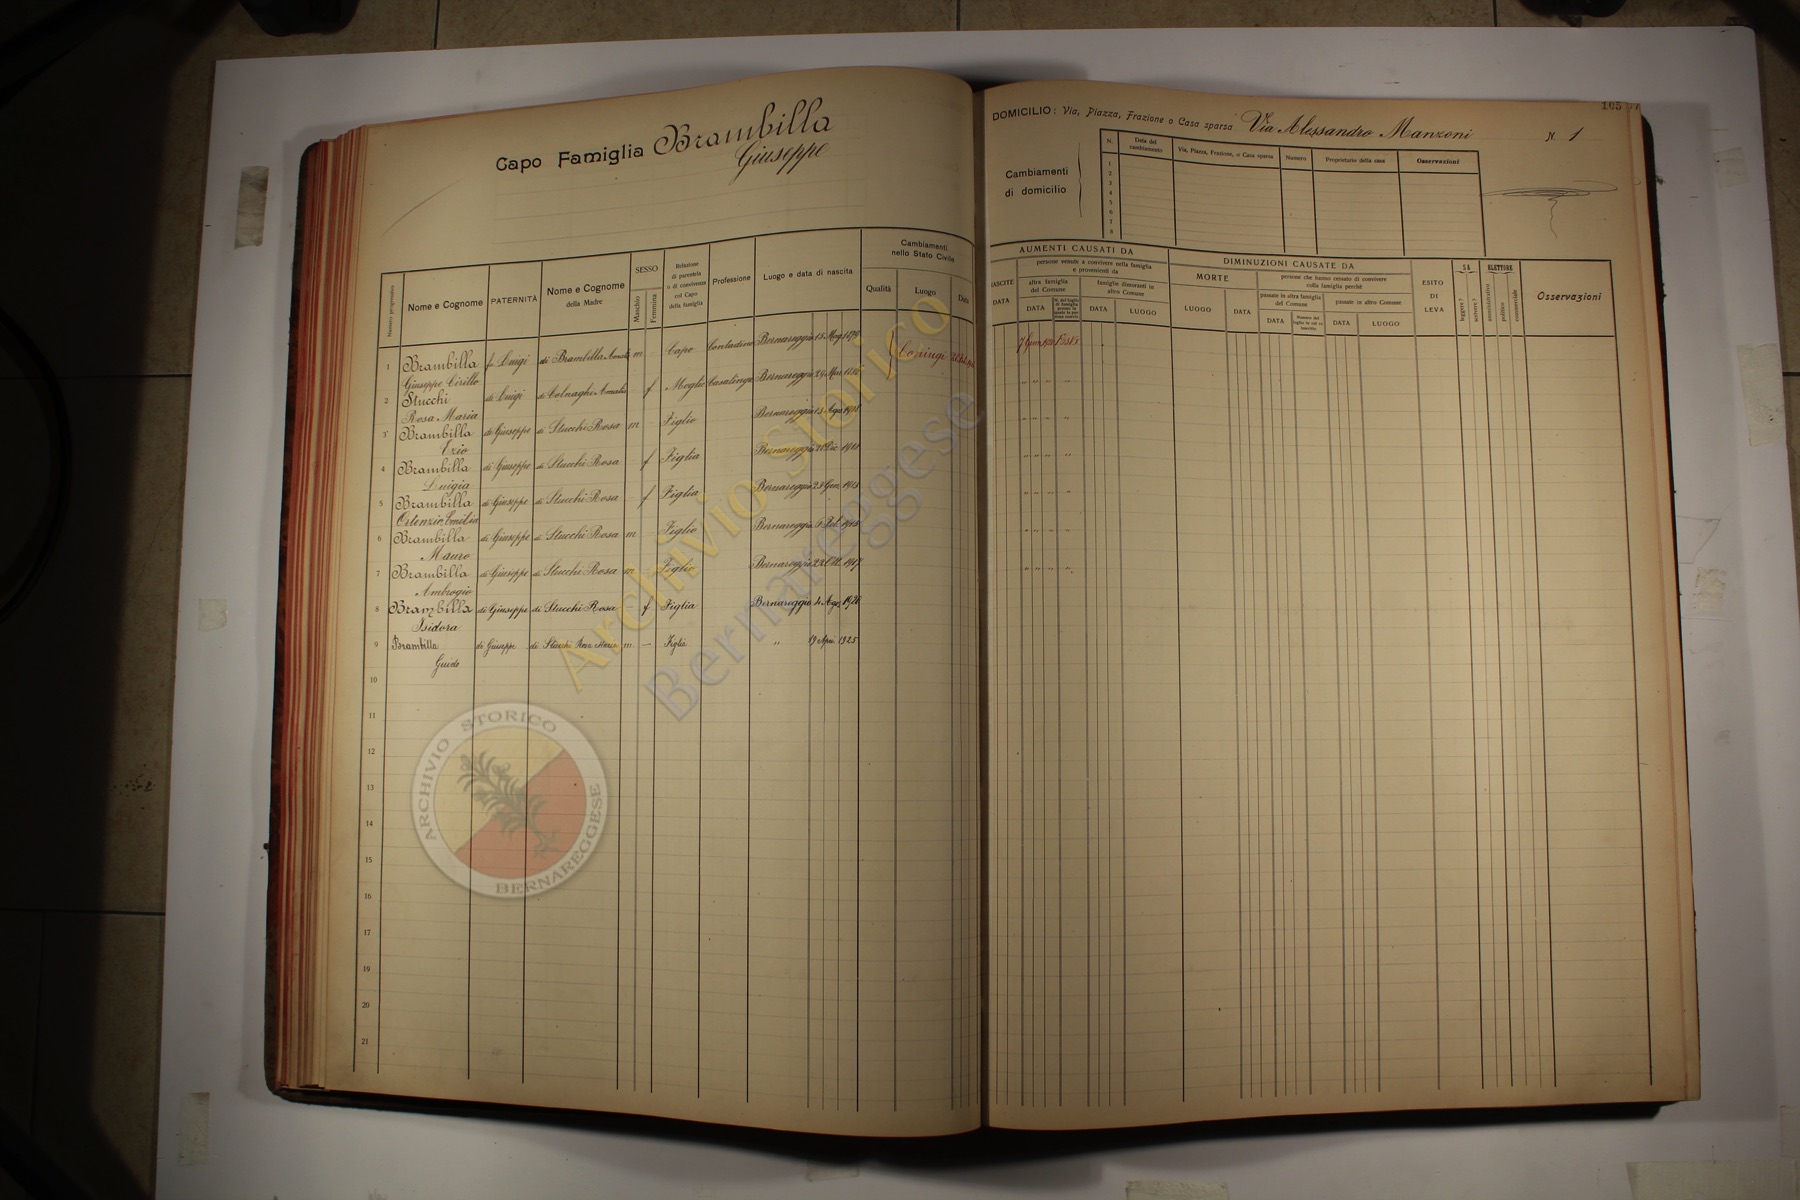 Capo Famiglia Brambilla
Giuseppe
Numero progressivo
Nome e Cognome
PATERNITÀ
Nome e Cognome
della Madre
SESSO
Maschio
Femmina
Relazione
di parentela
o di convivenza
col Capo
della famiglia
Professione
Luogo e data di nascita
Cambiamenti
nello Stato Civile
Qualità
Luogo
Data
1 Brambilla fu Luigi di Brambilla m Capo Contadino Bernareggio 15
Giuseppe Cirillo
2 Stucchi di Luigi di Colnaghi Amalia f Moglie Casalinga Bernareggio 29
Rosa Maria
3 Brambilla di Giuseppe di Stucchi Rosa m Figlio Bernareggio 15 Ago 1908
Ezio
4 Brambilla di Giuseppe di Stucchi Rosa f Figlia Bernareggio Dic
Luigia
5 Brambilla di Giuseppe di Stucchi Rosa – f Figlia Bernareggio 23 Gen 1913
Ortenzia Emilia
6 Brambilla di Giuseppe di Stucchi Rosa m Figlio Bernareggio 1915
Mauro
7 Brambilla di Giuseppe di Stucchi Rosa m – Figlio Bernareggio 22 Ott 1917
Ambrogio
8 Brambilla di Giuseppe di Stucchi Rosa – f Figlia Bernareggio 4 Ago
Isidora
9 Brambilla di Giuseppe di Stucchi Rosa Maria m – Figlio " 19 Apr 1925
Guido
10
11
12
13
14
15
16
17
19
20
21
105
DOMICILIO: Via, Piazza, Frazione o Casa sparsa Via Alessandro Manzoni N. 1
Cambiamenti
di domicilio
N.
Data del
cambiamento
Via, Piazza, Frazione, o Casa sparsa
Numero
Proprietario della casa
Osservazioni
1
2
3
4
5
6
7
8
AUMENTI CAUSATI DA
NASCITE
DATA
persone venute a convivere nella famiglia
e provenienti da
altra famiglia
del Comune
DATA
famiglie dimoranti in
altro Comune
DATA
LUOGO
DIMINUZIONI CAUSATE DA
MORTE
LUOGO
DATA
persone che hanno cessato di convivere
colla famiglia perchè
passate in altra famiglia
del Comune
DATA
passate in altro Comune
DATA
LUOGO
ESITO
DI
LEVA
SA
leggere?
scrivere?
ELETTORE
amministrativo
politico
commerciale
Osservazioni
Archivio Storico
Bernareggese
ARCHIVIO STORICO
BERNAREGGESE